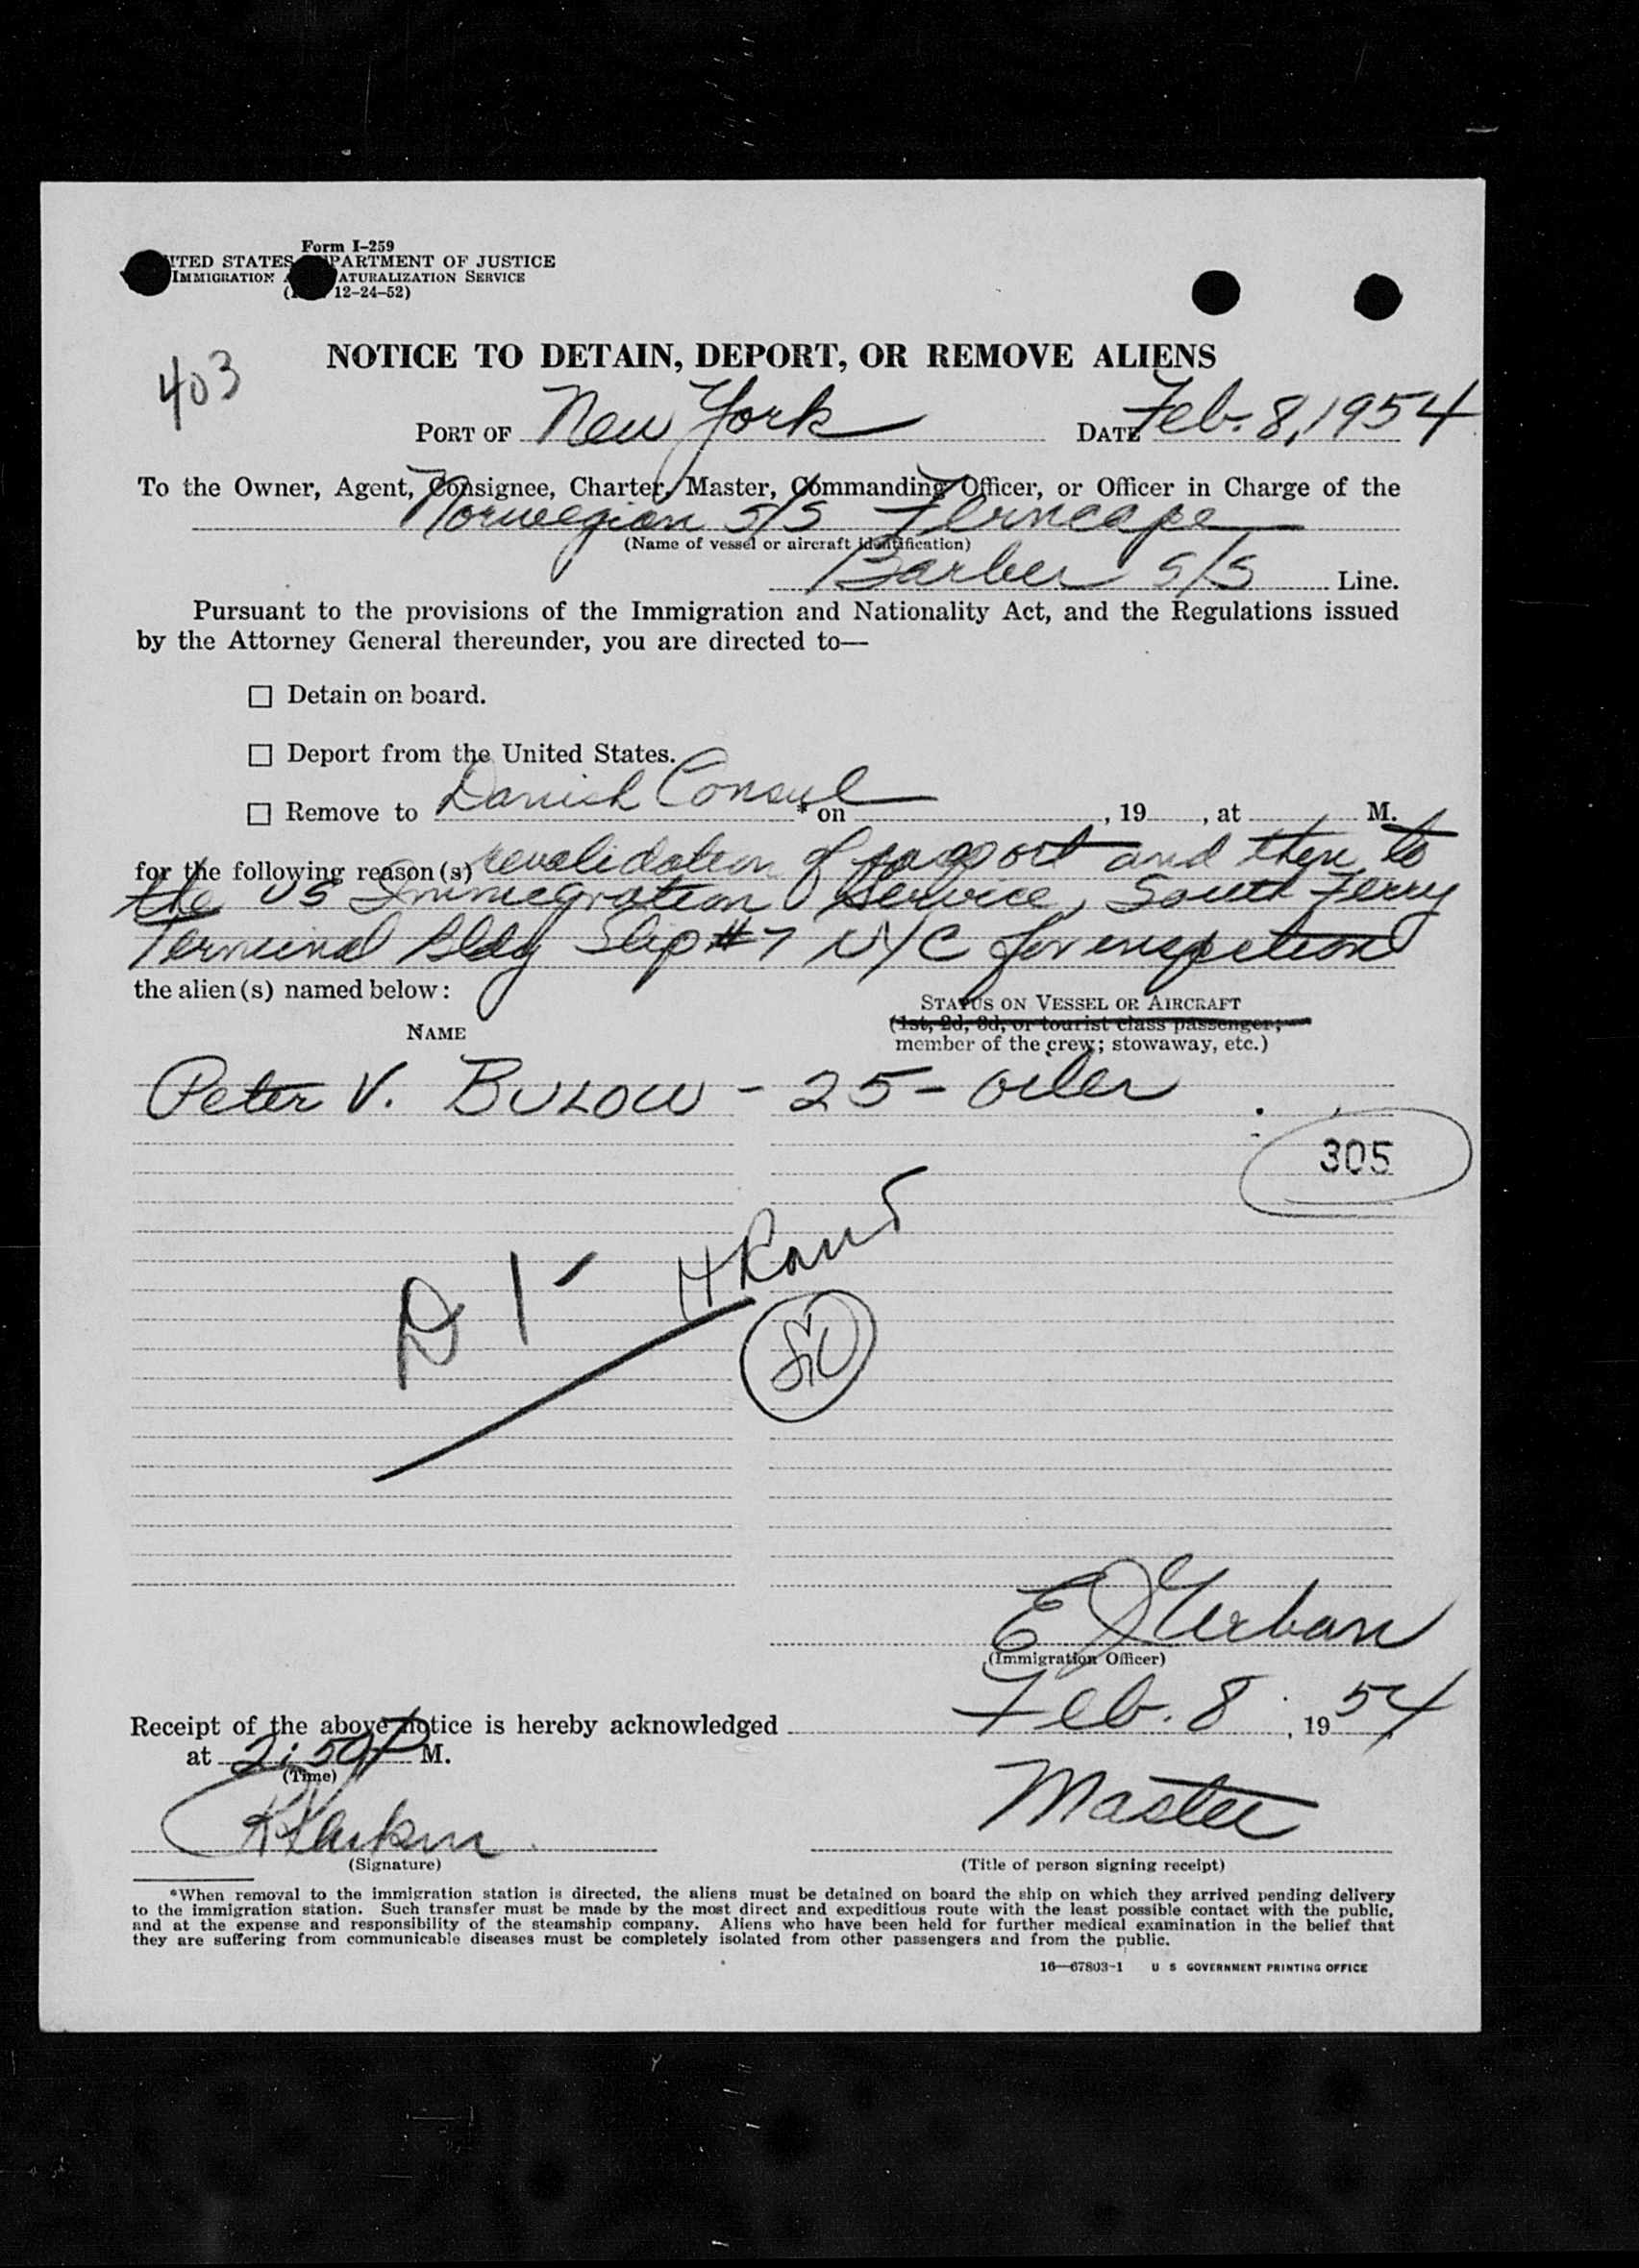 Form I-259
ITED STATES PARTMENT OF JUSTICE
IMMIGRATION A ATURALIZATION SERVICE
( 12-24-52)
403
NOTICE TO DETAIN, DEPORT, OR REMOVE ALIENS
PORT OF New York DATE Feb. 8, 1954
To the Owner, Agent, Consignee, Charter, Master, Commanding Officer, or Officer in Charge of the
Norwegian S/S Ferncape
(Name of vessel or aircraft identification)
Barber S/S Line.
Pursuant to the provisions of the Immigration and Nationality Act, and the Regulations issued
by the Attorney General thereunder, you are directed to—
☐ Detain on board.
☐ Deport from the United States.
☐ Remove to Danish Consul * on , 19 , at M.
for the following reason(s) revalidation of passport and then to
the US Immigration Service, South Ferry
Terminal Bldg Slip #7 NYC for inspection
the alien(s) named below:
STATUS ON VESSEL OR AIRCRAFT
NAME
(1st, 2d, 3d, or tourist class passenger;
member of the crew; stowaway, etc.)
Peter V. BULOW - 25 - oiler
305
D 1
E J Urban
(Immigration Officer)
Receipt of the above notice is hereby acknowledged Feb. 8, 1954
at 2:50 P M.
(Time)
Master
(Signature)
(Title of person signing receipt)
*When removal to the immigration station is directed, the aliens must be detained on board the ship on which they arrived pending delivery
to the immigration station. Such transfer must be made by the most direct and expeditious route with the least possible contact with the public,
and at the expense and responsibility of the steamship company. Aliens who have been held for further medical examination in the belief that
they are suffering from communicable diseases must be completely isolated from other passengers and from the public.
16—67803-1 U S GOVERNMENT PRINTING OFFICE